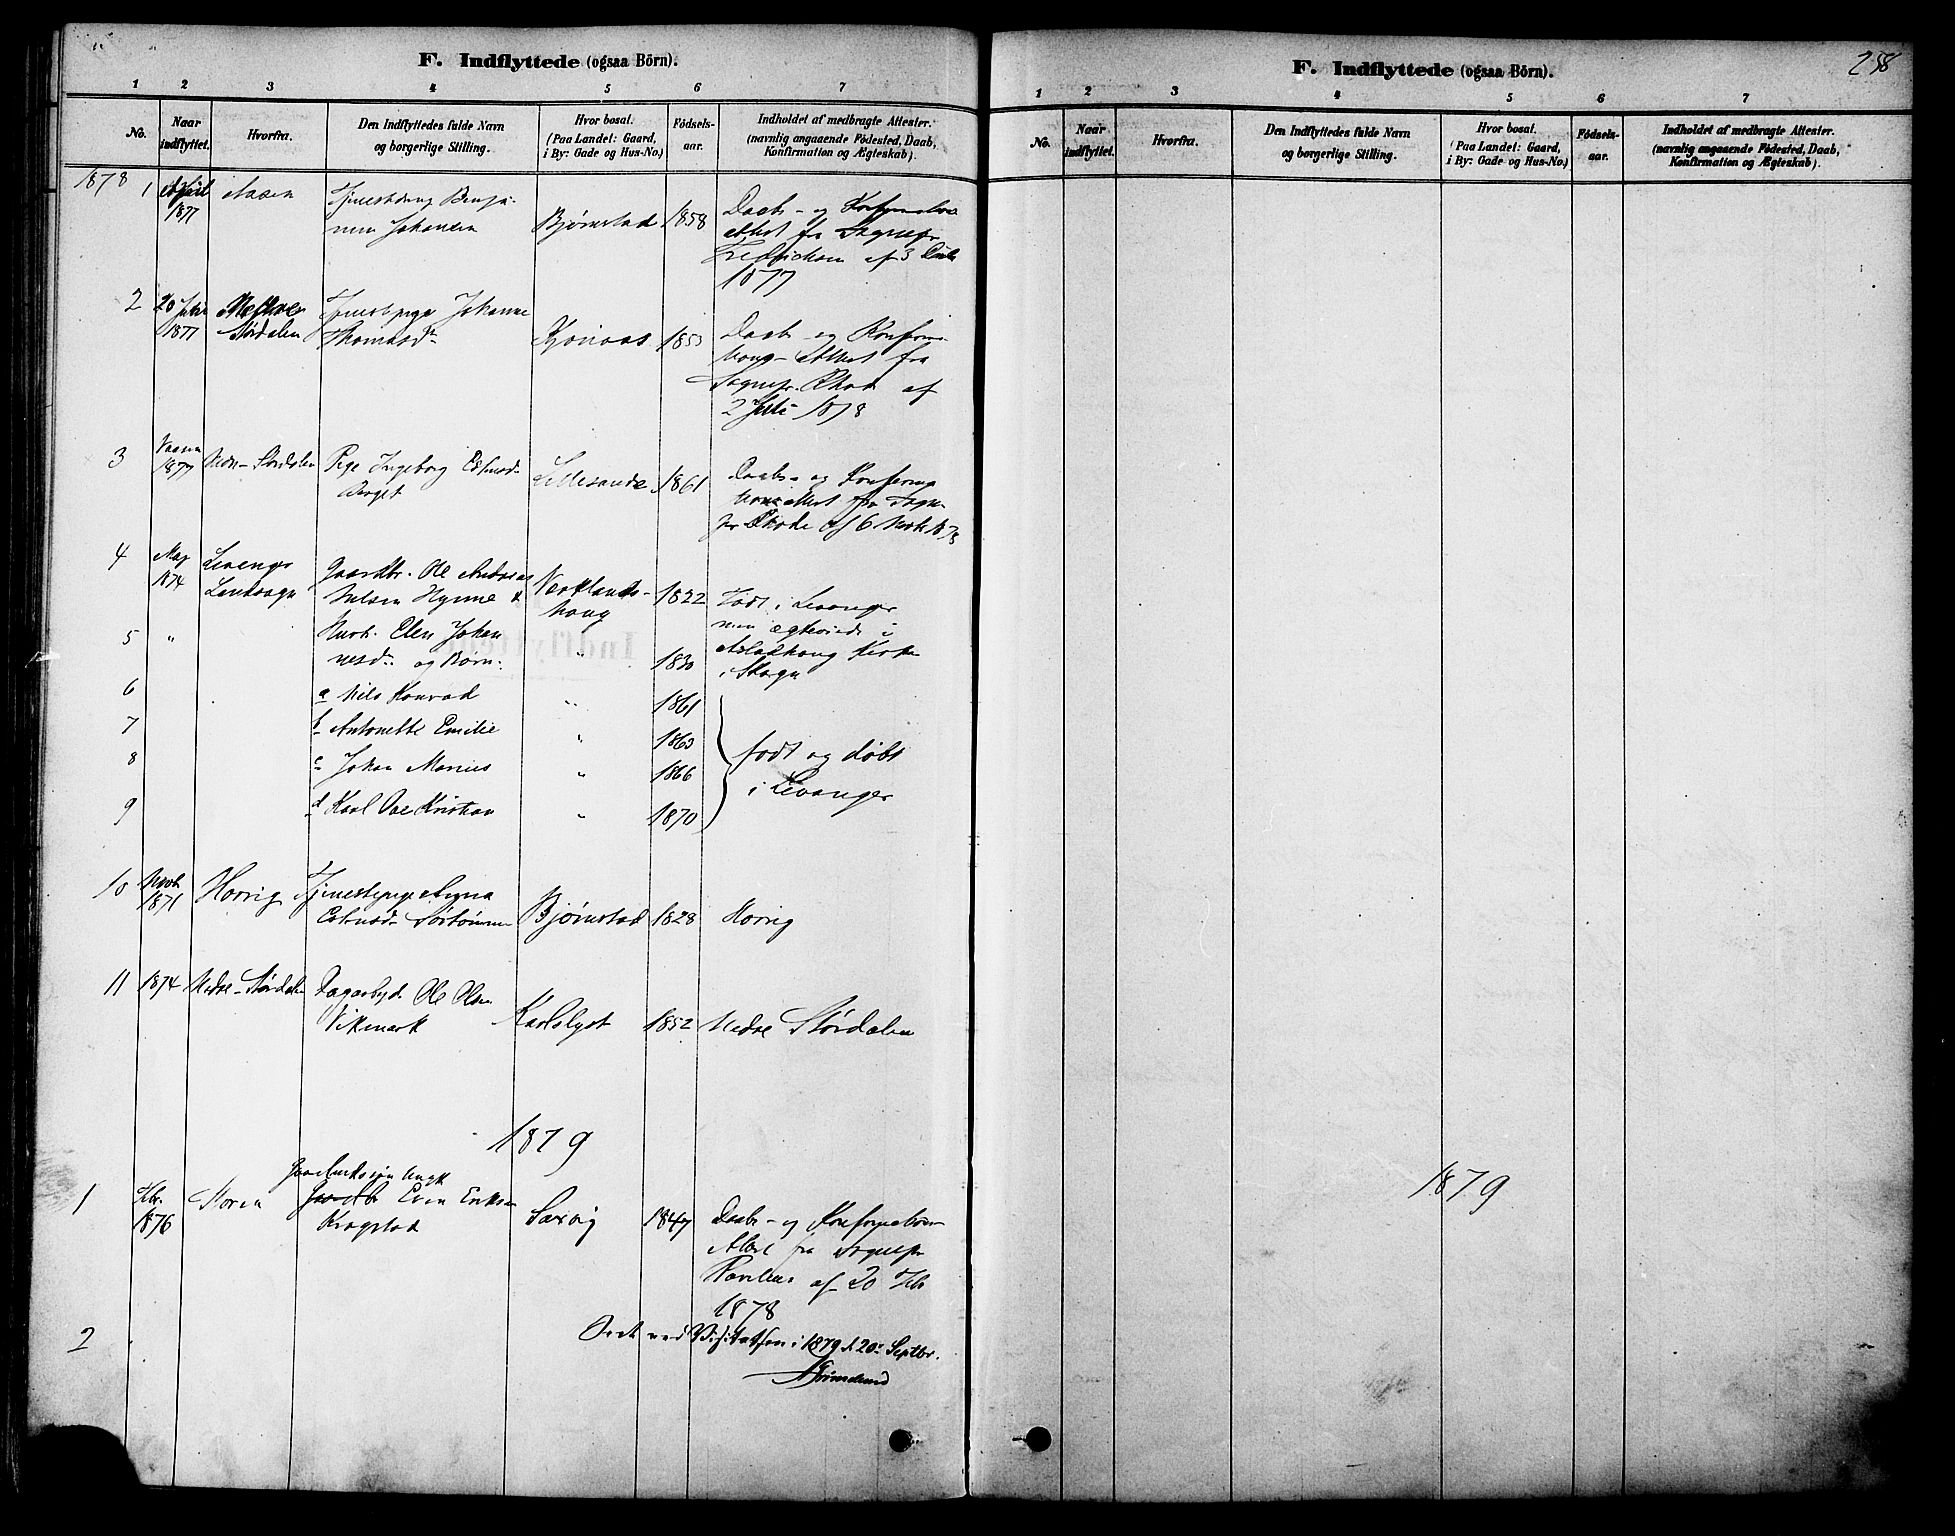 F. Indflyttede (ogsaa Börn).
1 2 3 4 5 6 7
No. Naar indflyttet. Hvorfra. Den Indflyttedes fulde Navn og borgerlige Stilling. Hvor bosat. (Paa Landet: Gaard, i By: Gade og Hus-No.) Födsels-aar. Indholdet af medbragte Attester. (navnlig angaaende Födested, Daab, Konfirmation og Ægteskab.)
1878
1 April 1877 Aasen Tjenestedreng Benja-
min Johansen Bjørnstad 1858 Daabs- og
attest fra Sognepr.
af 3
1877
2 20 1877 Nedre Størdalen Tjenestepige Johanne
Thomasdr. 1853 Daabs- og Konforma-
tions-Attest fra
Sognepr. Rhode af
2 Juli 1878
3 1877 Nedre-Stordalen Pige Ingeborg
Berget Lillesande 1861 Daabs- og Konforma-
tionsattest fra Sogne-
pr Rhode af 6
4 Maj 1874 Levanger Landsogn Gaardbr. Ole Andreas
Nilsen Hynne & 1822 Født i Levanger
5 " Hustr. Elen Johan-
nesdr. og Børn: " 1830 men ægteviede i
Kirke
i Skogn
6 a Nils Konrad " 1861
7 b Antonette Emilie " 1863
8 c Johan Marius " 1866 født og døbt
9 d Karl Ove Kristian " 1870 i Levanger
10 Novb. 1871 Horrig Tjenestepige
Bjørnstad 1828 Horrig
11 1874 Nedre-Størdalen Dagarbyd. Ole Olsen
Vikmark Karlslyst 1852 Nedre Størdalen
1879
1 Febr. 1876 Storen Gaardbrukssøn Ungk
Gaardbr Even Eriksen
Krogstad Saxvig 1847 Daabs- og Konformations-
Attest fra Sognepr
af 20 Feb
1878
2
Seet ved Visitatsen i 1879 d. 20de Septbr.
Grimelund
F. Indflyttede (ogsaa Börn).
258
1 2 3 4 5 6 7
No. Naar indflyttet. Hvorfra. Den Indflyttedes fulde Navn og borgerlige Stilling. Hvor bosat. (Paa Landet: Gaard, i By: Gade og Hus-No.) Födsels-aar. Indholdet af medbragte Attester. (navnlig angaaende Födested, Daab, Konfirmation og Ægteskab.)
1879